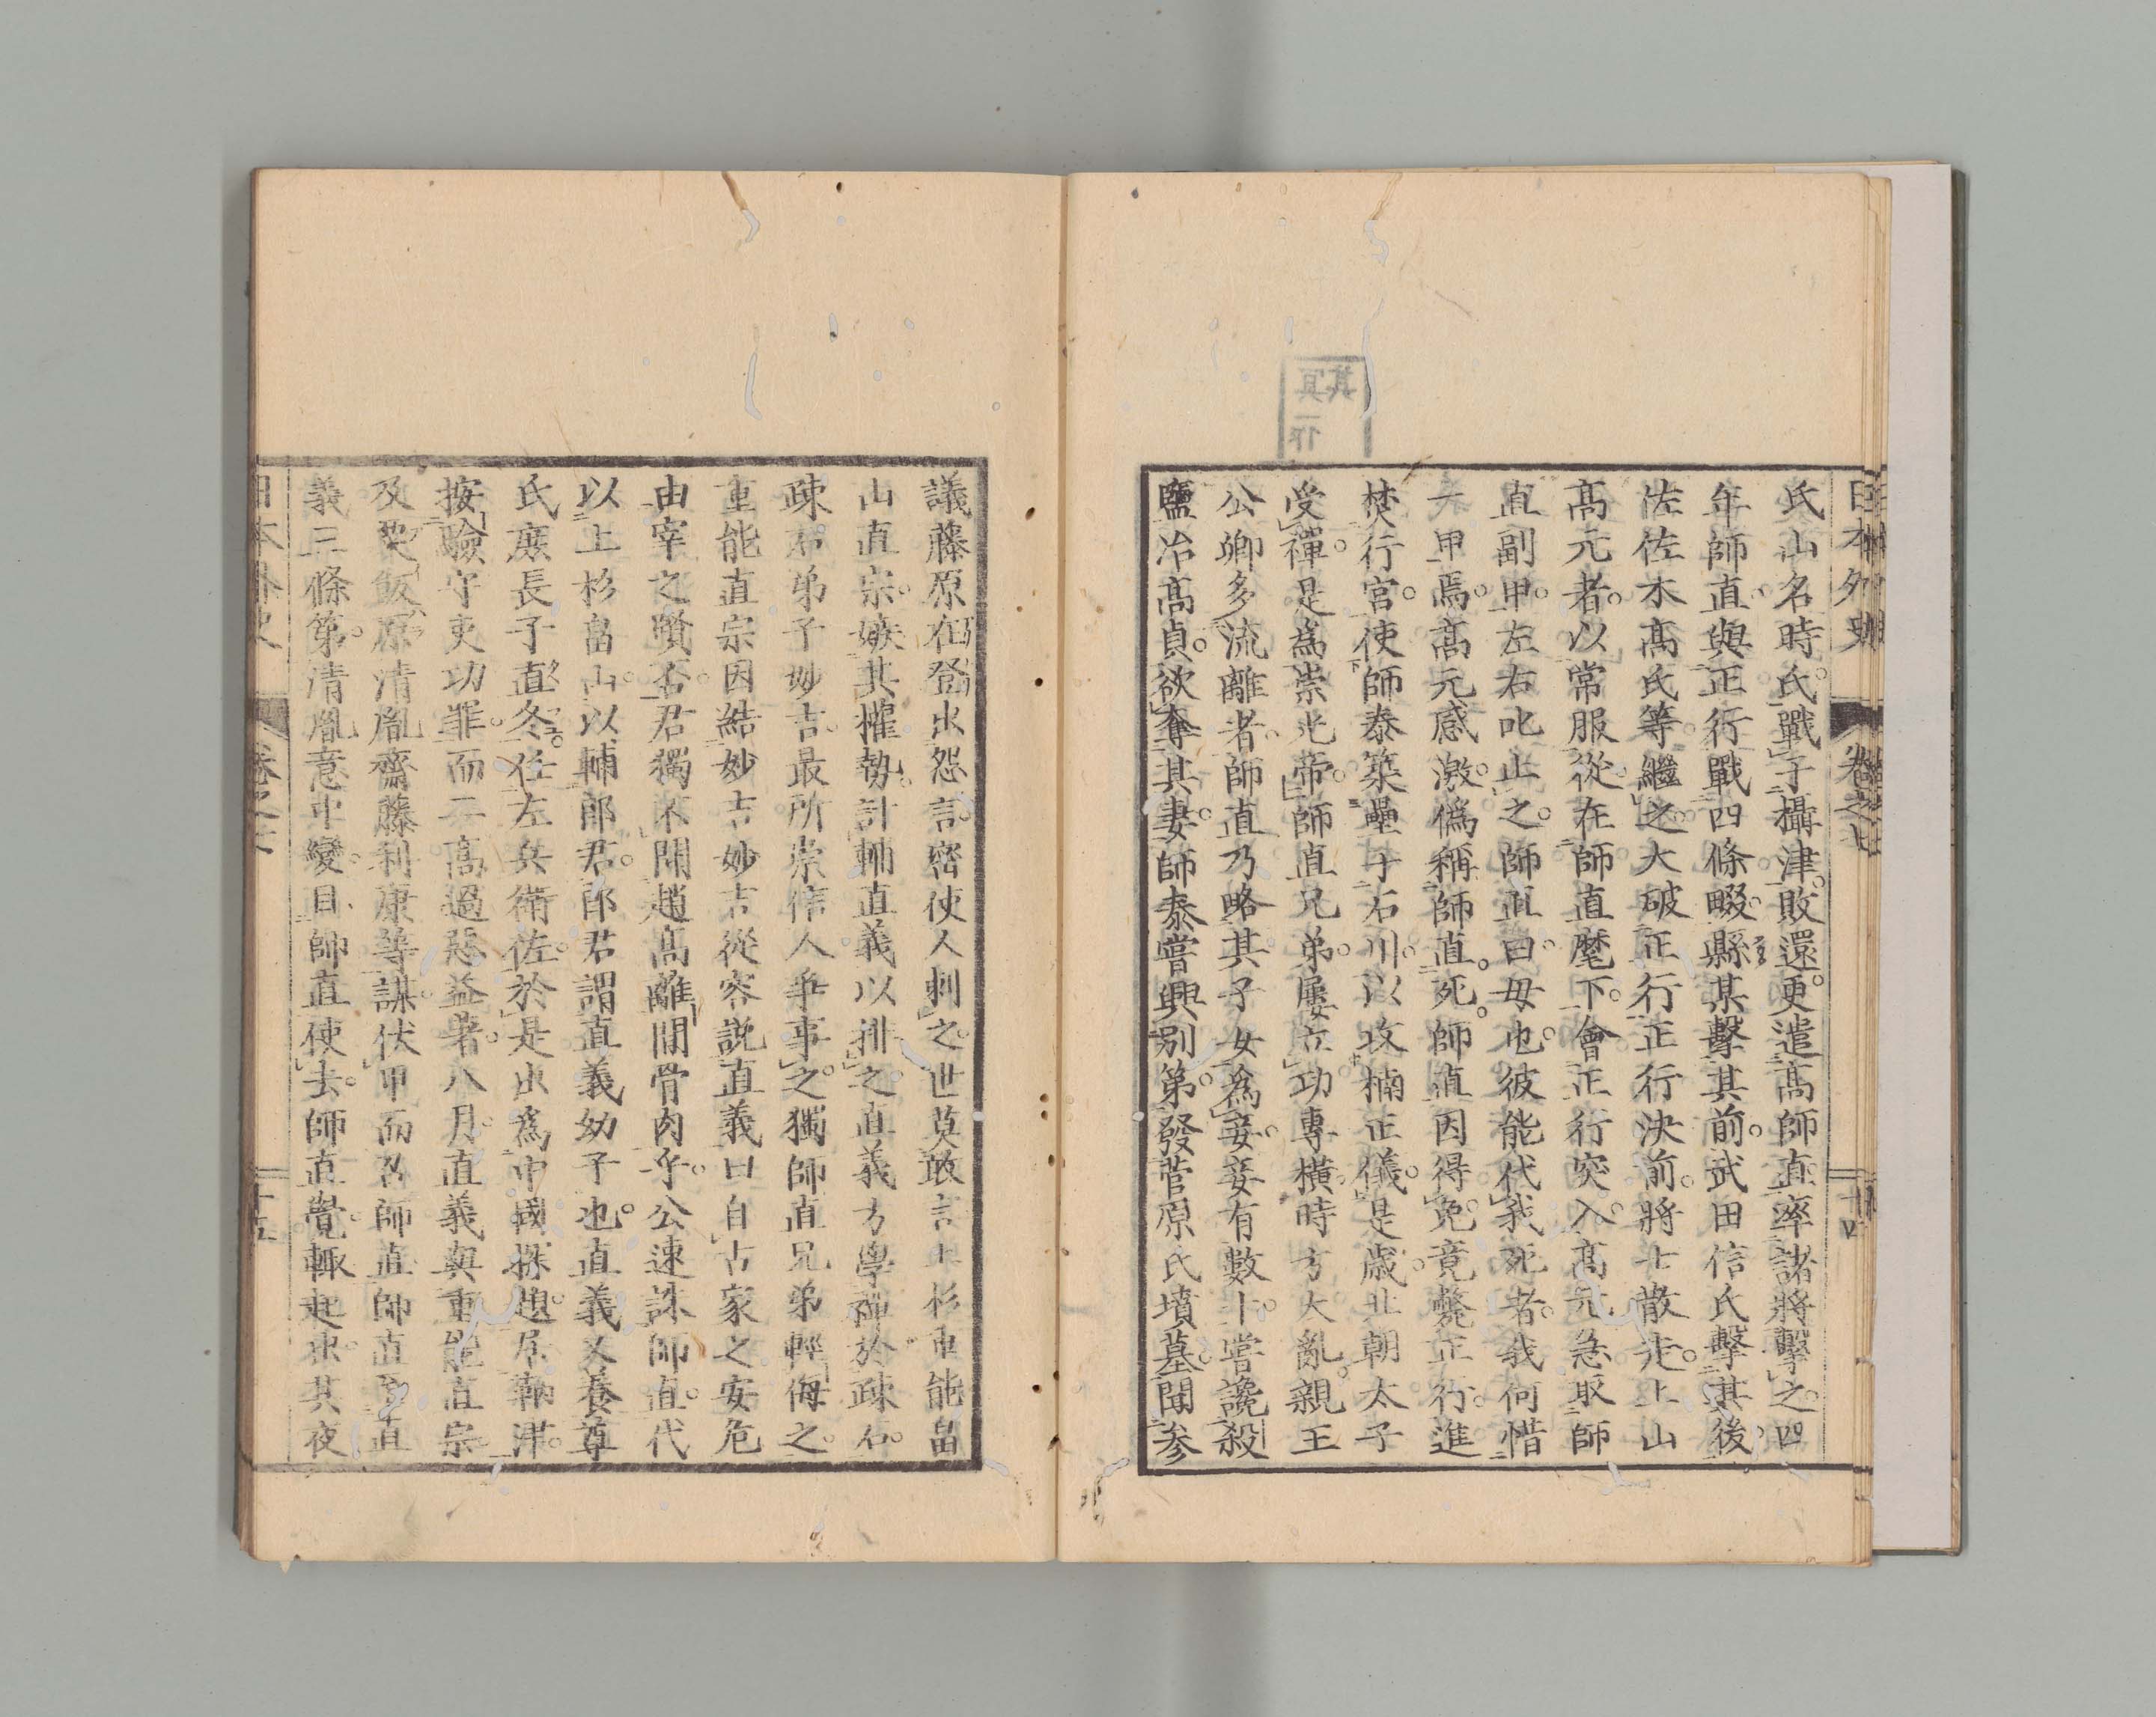 日本外史 卷之七 十四
氏山名時氏戰于攝津。敗還。更遣高師直率諸將擊之。四
年師直與正行戰四條畷。縣某擊其前。武田信氏擊其後。
佐佐木高氏等繼之。大破正行。正行決前。將士散走。上山
高元者。以常服從在師直麾下。會正行突入。高元急取師
直副甲。左右叱止之。師直曰。毋也。彼能代我死者。我何惜
一甲焉。高元感激。偽稱師直。死。師直因得免。竟斃正行。進
焚行宮。使師泰築壘于石川。以攻楠正儀。是歲。北朝太子
受禪。是為崇光帝。師直兄弟。屢立功專橫。時方大亂。親王
公卿多流離者。師直乃略其子女為妾。妾有數十。嘗讒殺
鹽冶高貞。欲奪其妻。師泰嘗興別第。發菅原氏墳墓。聞參
議藤原在登出怨言。密使人刺之。世莫敢言。上杉重能畠
山直宗。嫉其權勢。計輔直義以排之。直義方學禪於疎石。
疎石弟子妙吉。最所崇信。人爭事之。獨師直兄弟輕侮之。
重能直宗因結妙吉。妙吉從容説直義曰。自古家之安危
由宰之賢否。君獨不聞趙高離間骨肉乎。公速誅師直。代
以上杉畠山。以輔郎君。郎君謂直義幼子也。直義又養尊
氏庶長子直冬。任左兵衛佐。於是出為中國探題。居鞆津。
按驗守吏功罪。而二高過惡益著。八月。直義與重能直宗
及粟飯原清胤齋藤利康等謀。伏甲而召師直。師直詣直
義三條第。清胤意中變。目師直使去。師直覺輙起出。其夜
日本外史 卷之七 十五
其冥一作